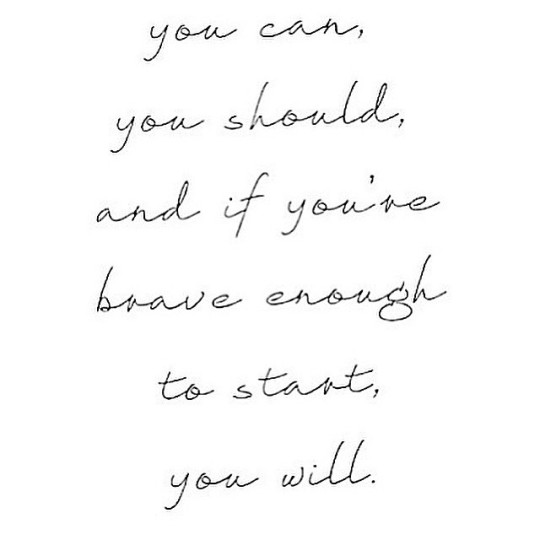 you can,
you should,
and if you're
brave enough
to start,
you will.